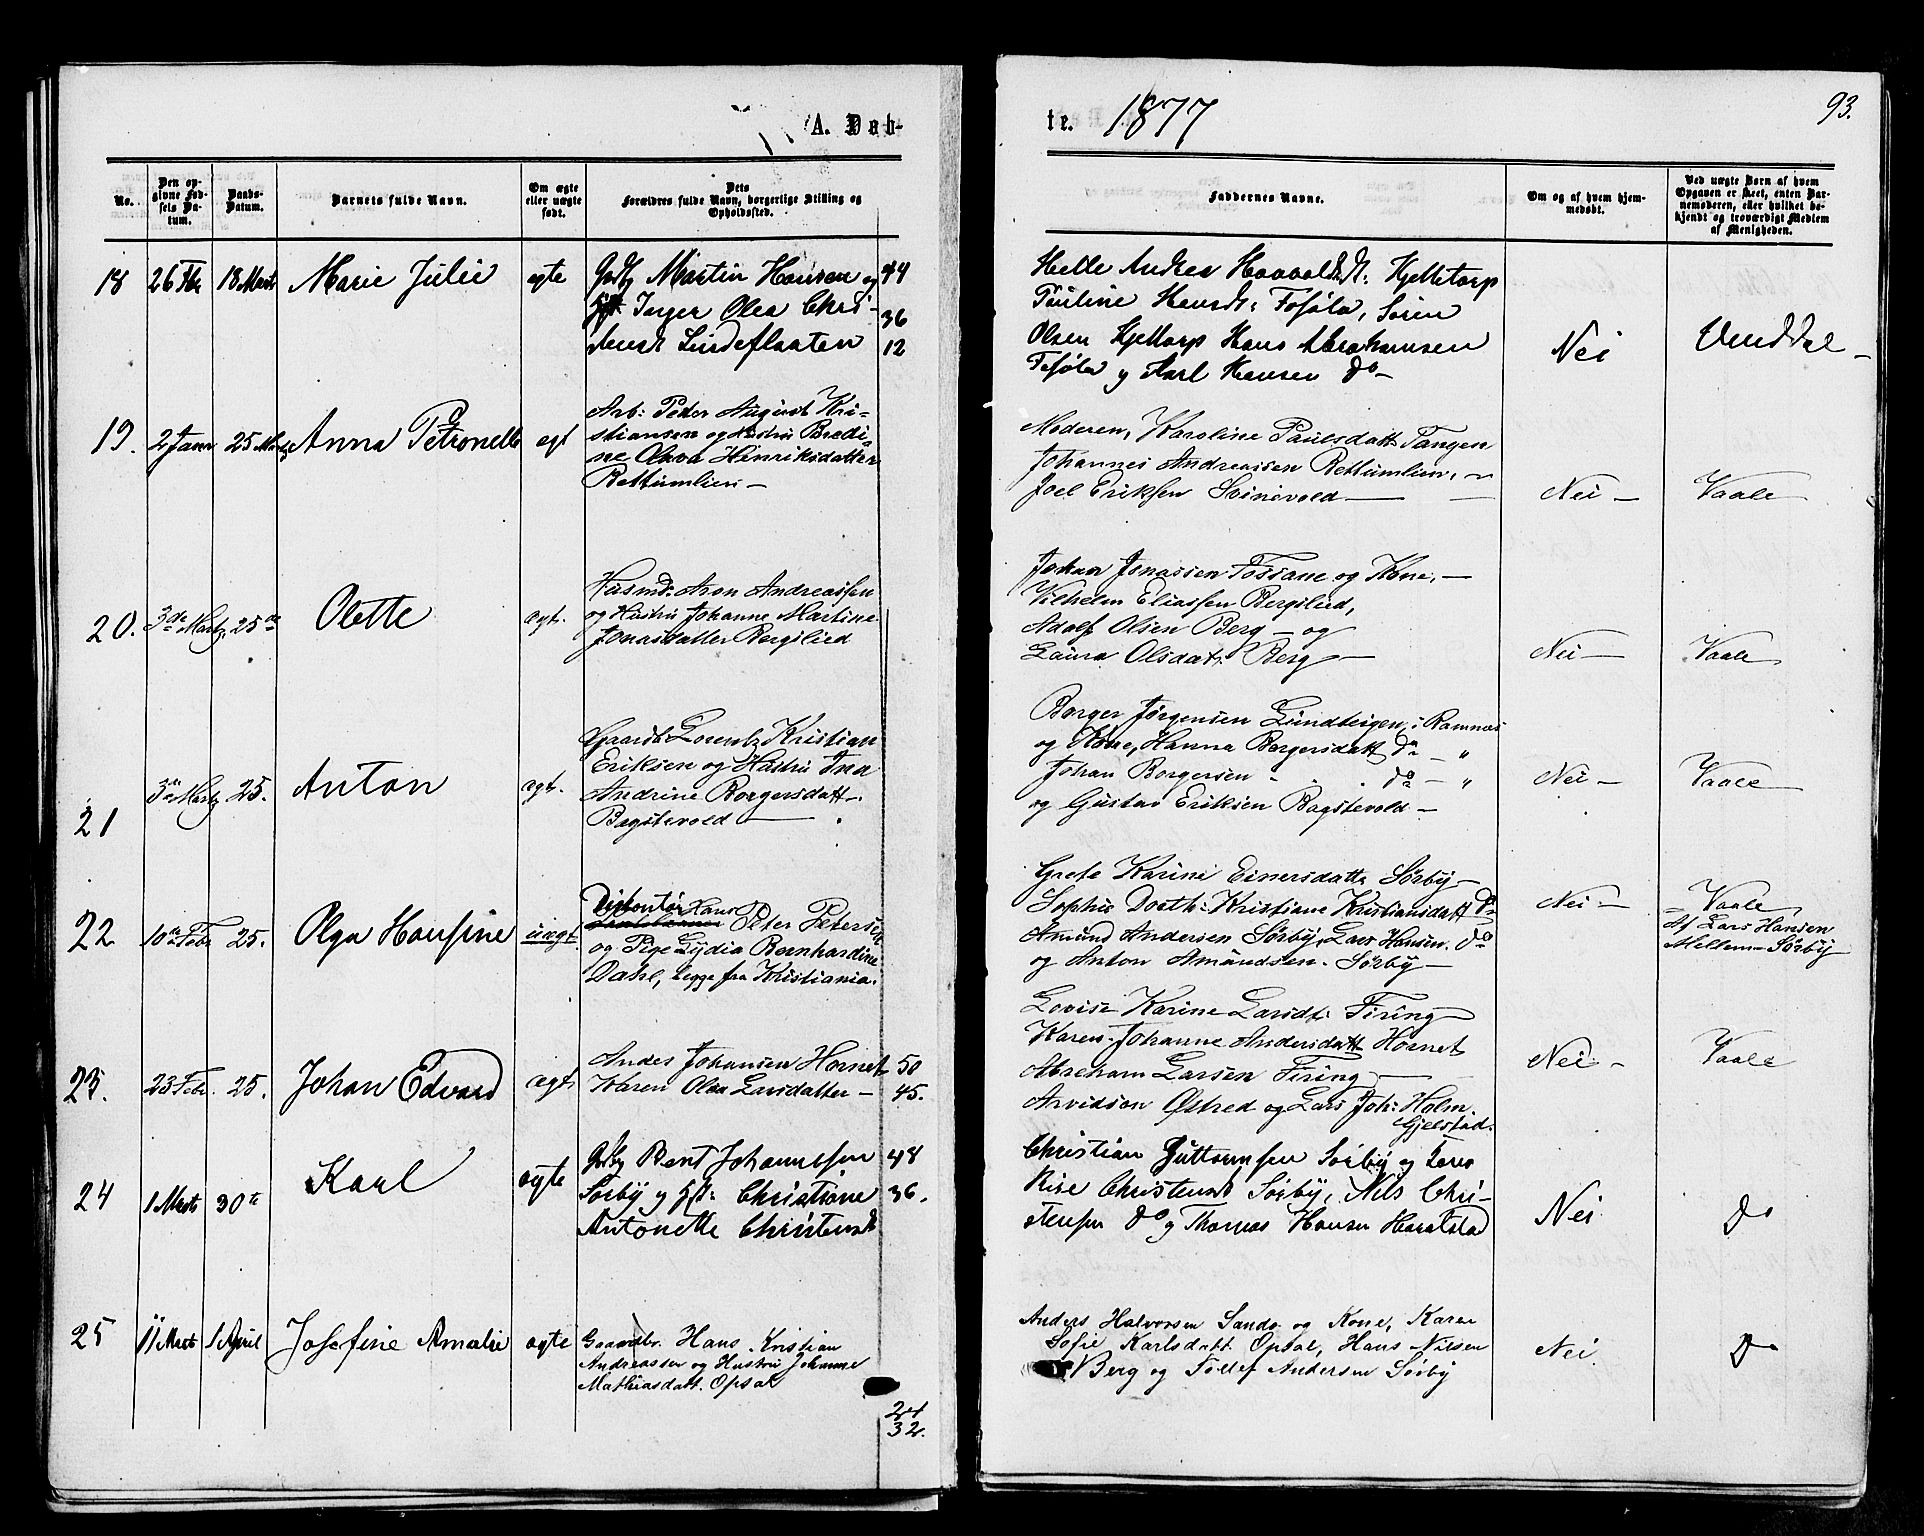 A. Døb-
te. 1877
93.
No.
Den op-
givne Fød-
sels Da-
tum.
Daabs-
Datum.
Barnets fulde Navn.
Om ægte
eller uægte
født.
Dets
Forældres fulde Navn, borgerlige Stilling og
Opholdssted.
Faddernes Navne.
Om og af hvem hjem-
medøbt.
Ved uægte Børn af hvem
Opgaven er skeet, enten Bar-
nemoderen, eller hvilket be-
kjendt og troværdigt Medlem
af Menigheden.
18 26 Fbr 18 Marts Marie Julie ægte
Martin Hansen og 44
Inger Olea Chri- 36
stensd Lindeflaaten 12
Helle Andrea Haavaldsdt: Hjelttorp
Pauline Hansdt: Fosøla, Søren
Olsen Hjeltorp Hans Abrahamsen
Fosøla og Karl Hansen Do-
Nei
19. 2 Janr 25 Marts Anna Petronelle ægt
Arb: Peder August Kri-
stiansen og Hustru Bredi-
ne Olava Hinriksdatter
Rettumlien -
Moderen, Karoline Paulsdatt Tangen
Johannes Andreassen Rettumlien, -
Joel Eriksen Svinevold
Nei - Vaale
20. 3de Martz 25de Olette ægt.
Husmd: Aron Andreassen
og Hustru Johanne Martine
Jonasdatter Bergslied
Johan Jonassen Fossane og Kone, -
Vilhelm Eliassen Bergslied,
Adolf Olsen Berg - og
Laura Olsdatt. Berg -
Nei - Vaale
21 3de Martz 25. Anton ægt.
Gaardb: Lorentz Kristian
Eriksen og Hustru Ina
Andrine Borgersdatt-
Bagstevold -
Borger Jørgensen Lundteigen, i Ramnes
og Kone, Hanna Borgersdatt do - "
Johan Borgersen - . . do - "
og Gustav Eriksen Bagstevold -
Nei - Vaale
22 10de Febr 25. Olga Hansine uægt.
Hans Peter Petersen
og Pige Lydia Bernhardine
Dahl, begge fra Kristiania.
Grete Karine Einersdatt. Sørby -
Sophie Doeth: Kristiane Kristiansdatt Do
Amund Andersen Sørby, Lars Hansen. Do
og Anton Amundsen. Sørby -
Nei - Vaale
Af Lars Hansen
Mellem-Sørby
23. 23 Febr. 25. Johan Edvard ægt.
Andes Johansen Hornet 50
Karen Olea Larsdatter - 45.
Lovise Karine Larsdt. Firing
Karen Johanne Andersdatt Hornet
Abraham Larsen Firing
Arvidson Østred og Lars Joh: Holm.
Gjelstad.
Nei - Vaale
24 1 Marts 30te Karl ægte
Bent Johannessen 48
Sørby og Christiane 36.
Antonette Christensdt
Christian Guttormsen Sørby og
Christensdt Sørby, Nils Chri-
stensen Do og Thomas Hansen Haralstad
Nei Do
25 11 Marts 1 April Josefine Amalie ægte
Gaardbr. Hans Kristian
Andreassen og Hustru Johanne
Mathiasdatt. Opsal
Anders Halvorsen Sando og Kone, Karen
Sofie Karlsdatt Opsal, Hans Nilsen
Berg og Tollef Andersen Sørby
Nei. Do
24
32.